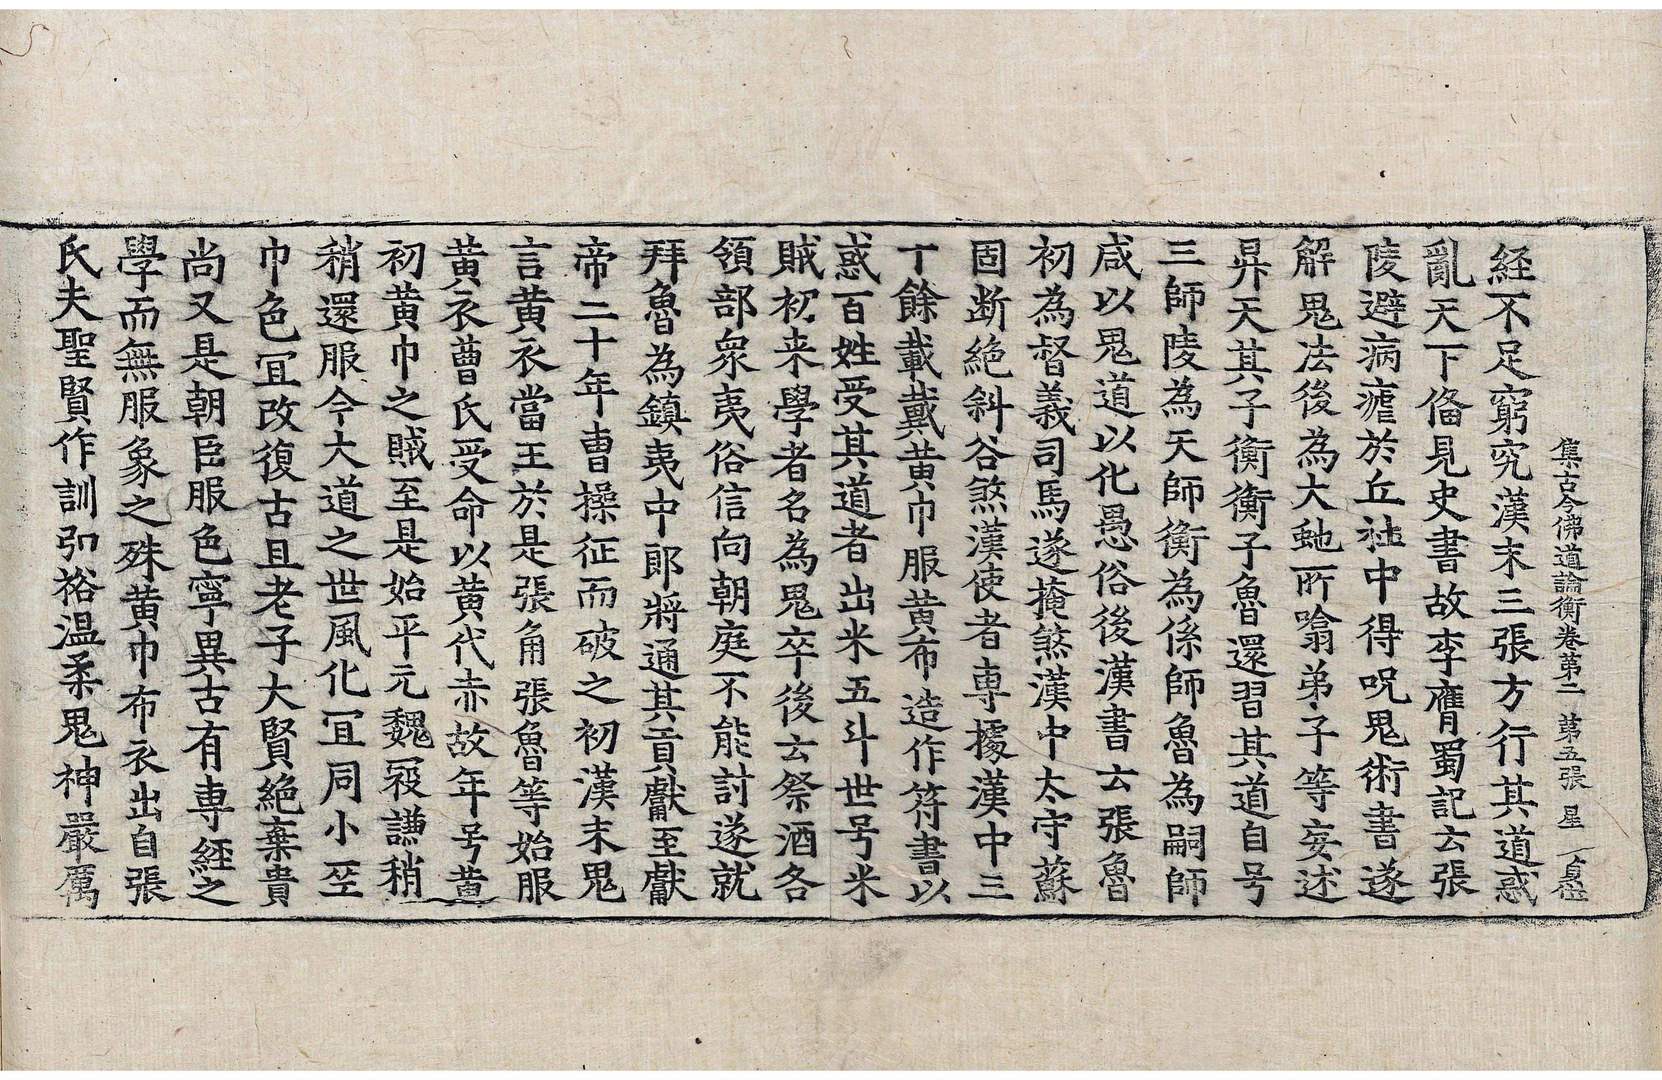 集古今佛道論衡卷第二 第五張 星
経不足窮究漢末三張方行其道惑
亂天下俻見史書故李膺蜀記云張
陵避病瘧於丘社中得呪鬼術書遂
解鬼法後為大虵所噏弟子等妄述
昇天其子衡衡子魯還習其道自号
三師陵為天師衡為係師魯為嗣師
咸以鬼道以化愚俗後漢書云張魯
初為督義司馬遂掩煞漢中太守蘇
固断絶斜谷煞漢使者専據漢中三
十餘載戴黄巾服黄布造作符書以
惑百姓受其道者出米五斗世号米
賊初来學者名為鬼卒後云祭酒各
領部衆夷俗信向朝庭不能討遂就
拜魯為鎮夷中郎將通其貢獻至獻
帝二十年曺操征而破之初漢末鬼
言黄衣當王於是張角張魯等始服
黄衣曺氏受命以黄代赤故年号黄
初黄巾之賊至是始平元魏冦謙稍
稍還服今大道之世風化冝同小巫
巾色冝改復古且老子大賢絶棄貴
尚又是朝臣服色寧異古有専経之
學而無服象之殊黄巾布衣出自張
氏夫聖賢作訓弘裕温柔鬼神嚴厲